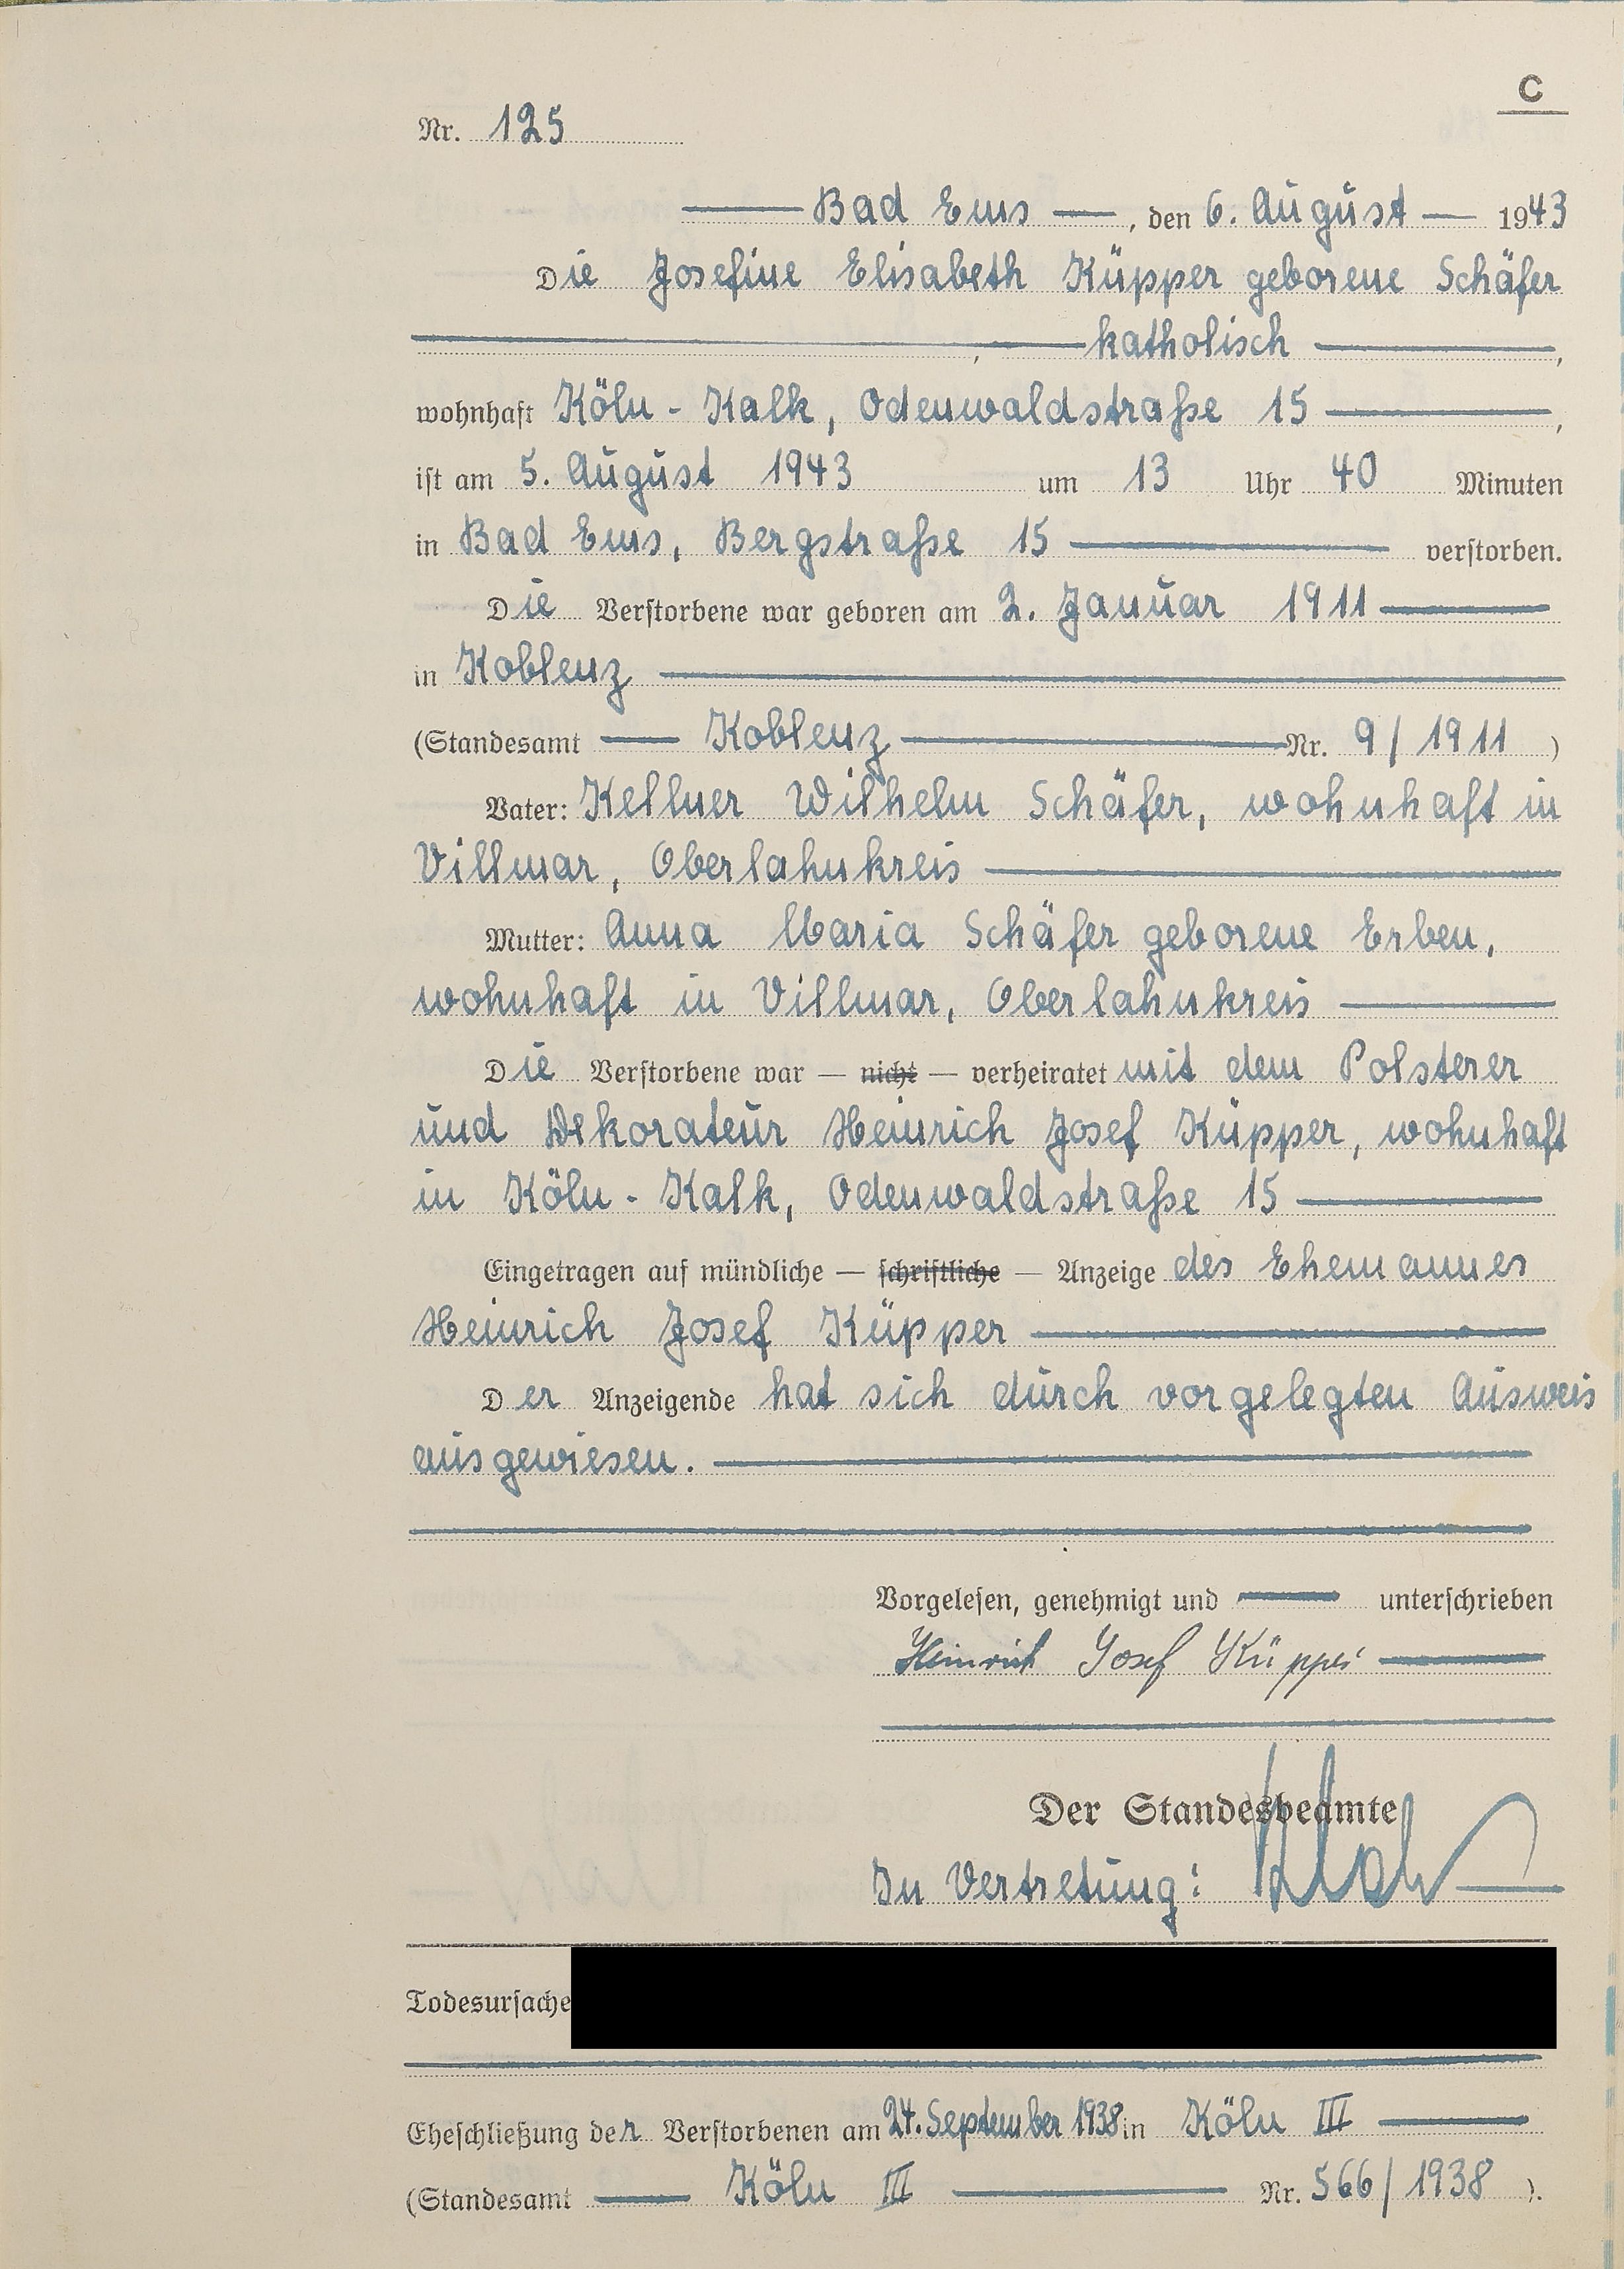 C
Nr. 125
Bad Ems, den 6. August 1943
Die Josefine Elisabeth Küpper geborene Schäfer
, katholisch,
wohnhaft Köln-Kalk, Odenwaldstraße 15,
ist am 5. August 1943 um 13 Uhr 40 Minuten
in Bad Ems, Bergstraße 15 verstorben.
Die Verstorbene war geboren am 2. Januar 1911
in Koblenz
(Standesamt Koblenz Nr. 9/1911)
Vater: Kellner Wilhelm Schäfer, wohnhaft in
Villmar, Oberlahnkreis
Mutter: Anna Maria Schäfer geborene Erben,
wohnhaft in Villmar, Oberlahnkreis
Die Verstorbene war — nicht — verheiratet mit dem Polsterer
und Dekorateur Heinrich Josef Küpper, wohnhaft
in Köln-Kalk, Odenwaldstraße 15
Eingetragen auf mündliche — schriftliche — Anzeige des Ehemannes
Heinrich Josef Küpper
Der Anzeigende hat sich durch vorgelegten Ausweis
ausgewiesen.
Vorgelesen, genehmigt und unterschrieben
Heinrich Josef Küpper
Der Standesbeamte
In Vertretung:
Todesursache
Eheschließung der Verstorbenen am 24. September 1938 in Köln III
(Standesamt Köln III Nr. 566/1938).